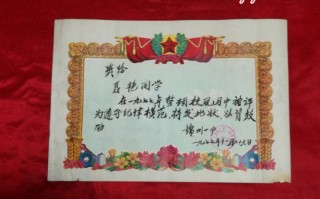 奖给
聂艳同学
在一九七七年整顿校风月中被评
为遵守纪律模范，特发此状，以资鼓
励
锦州一中
一九七七年十一月十九日